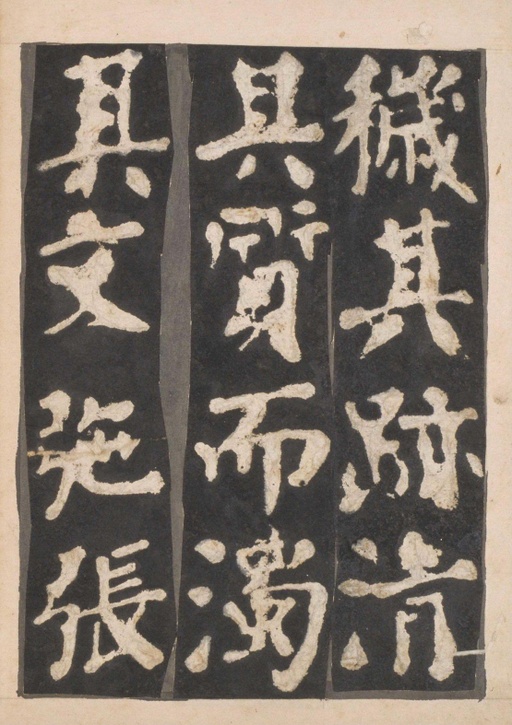 穢其跡清
其質而濁
其文弛張